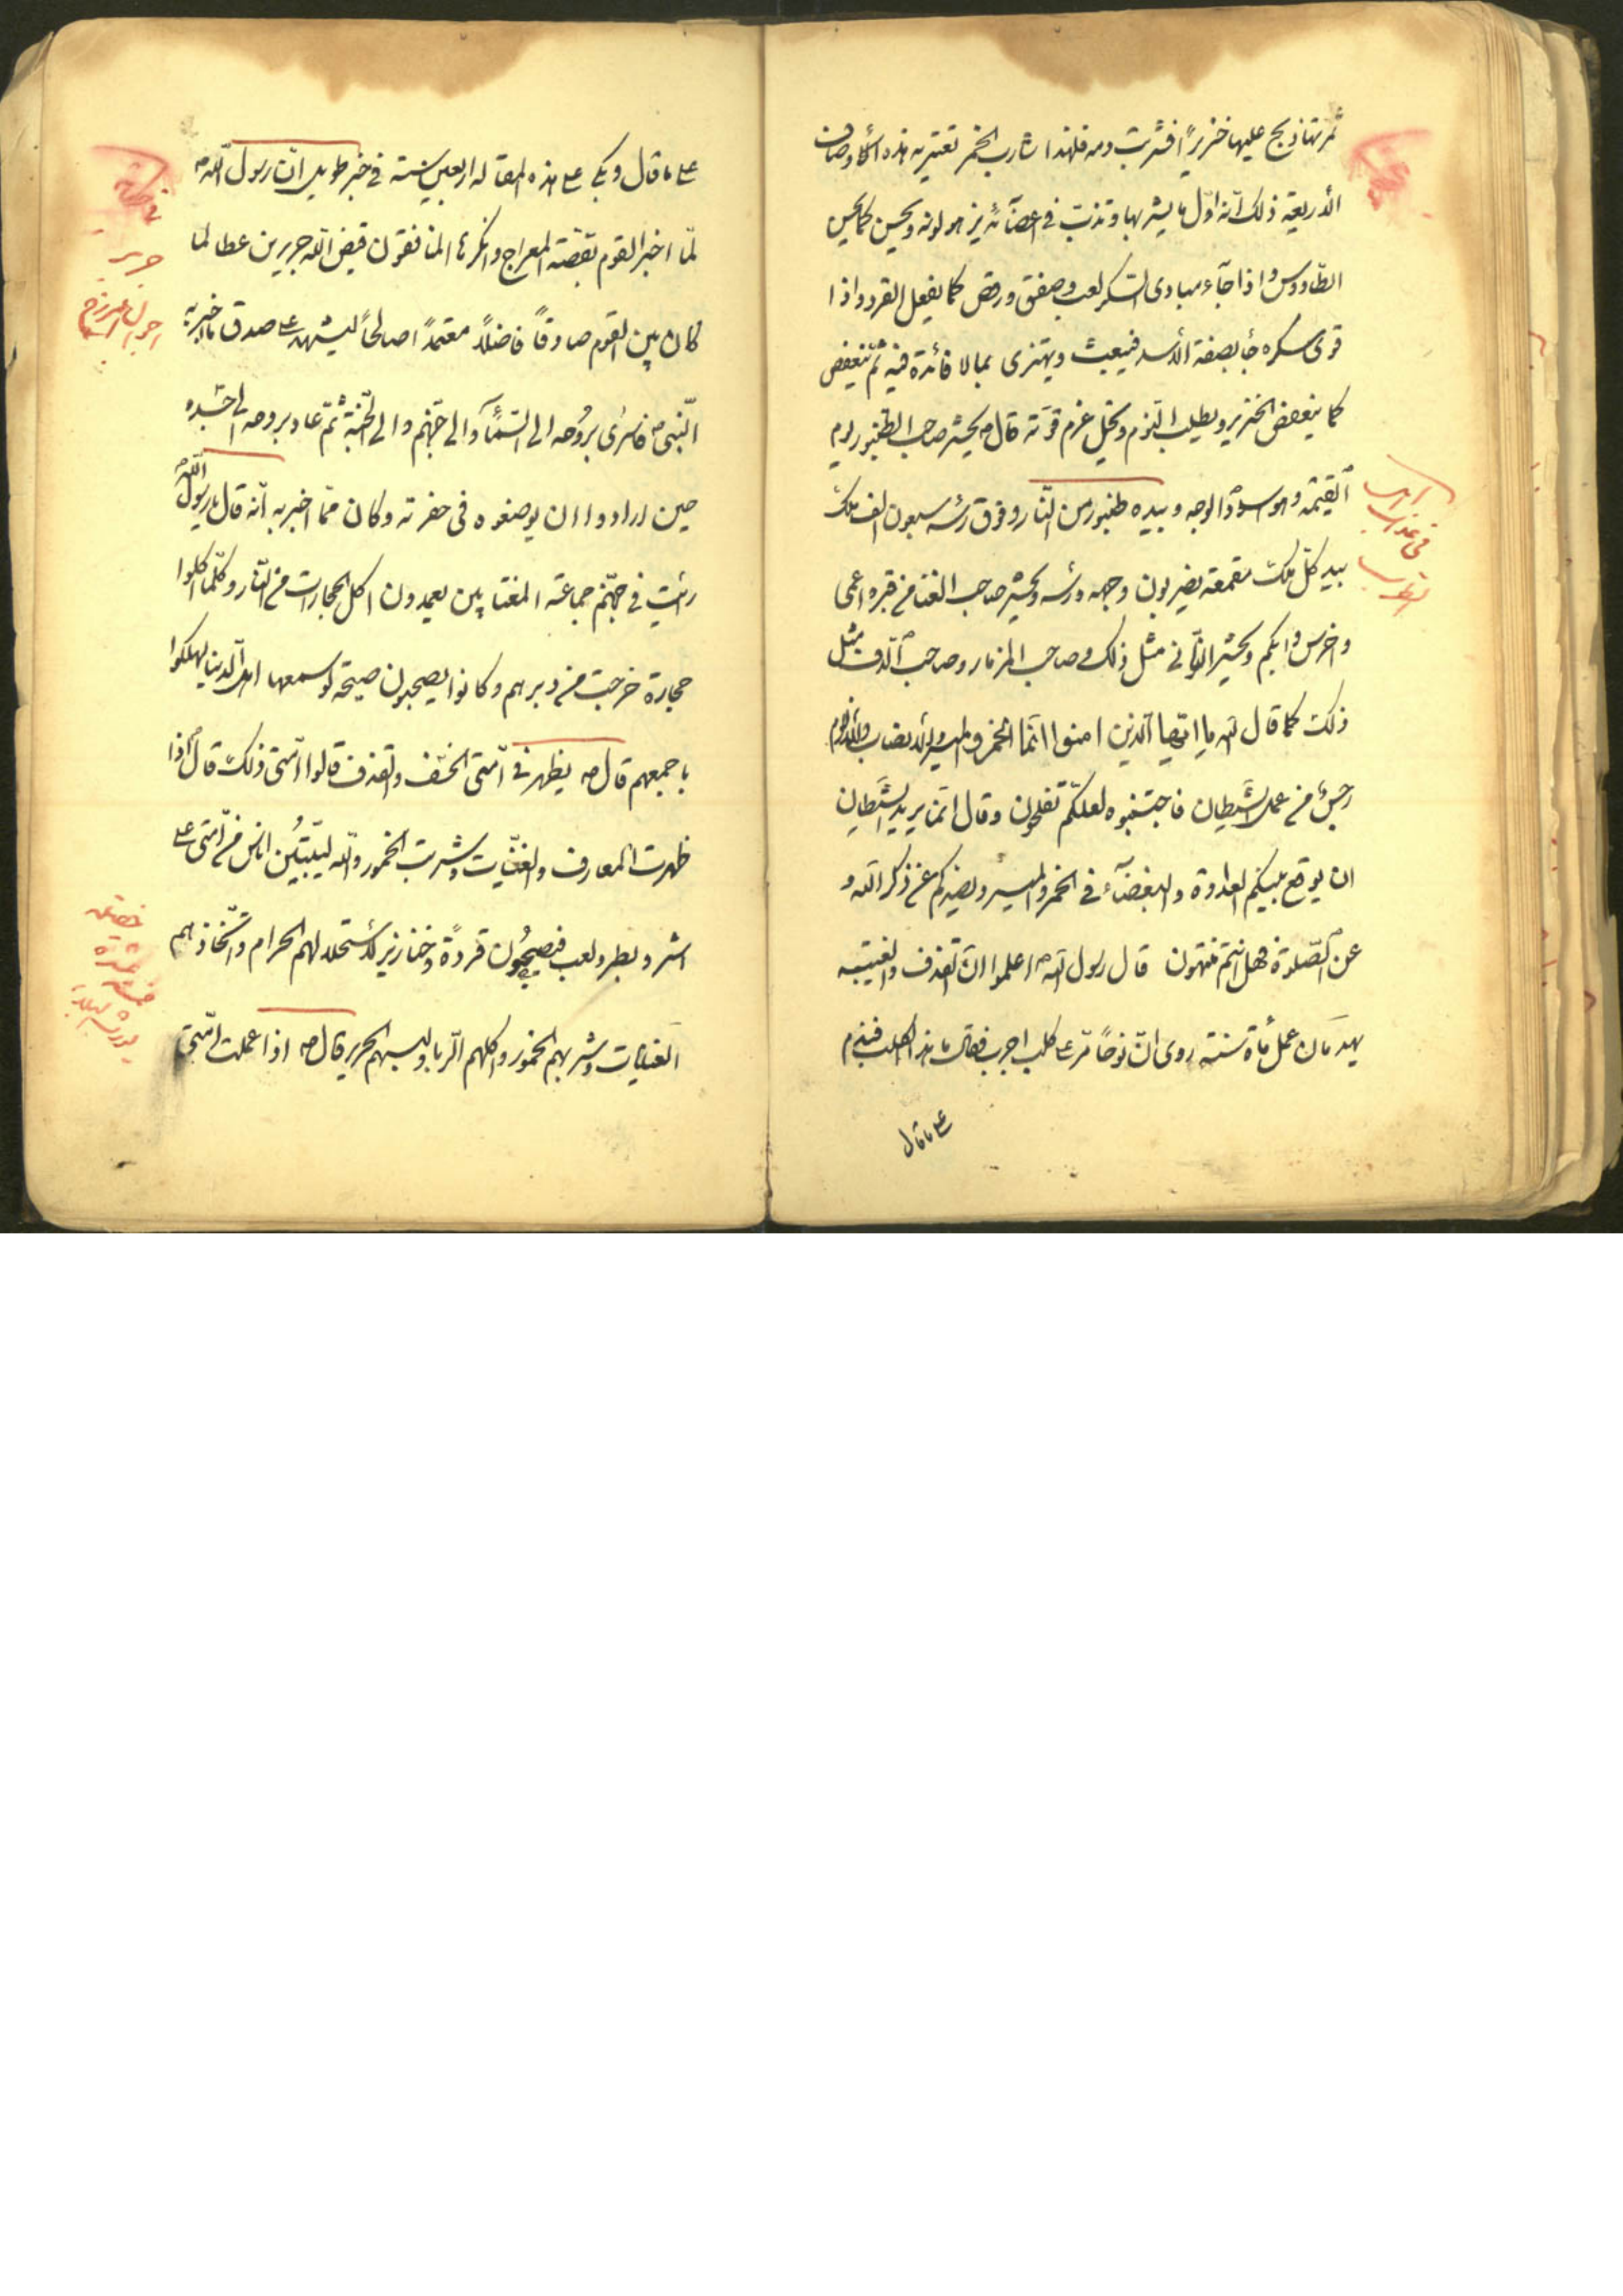 ثمرتها ذبح عليها خنزيراً فشربت دمه فلهذا شارب الخمر تعتريه هذه الأوصاف
الأربعة ذلك انه اول ما يشربها وتدب في اعضائه يزهو لونه ويحسن كما يحسن
الطاووس واذا جآء مبادى السكر لعب وصفق ورقص كما يفعل القرد واذا
قوى سكره جأ بصفة الأسد فيعبث ويهتزى بما لا فائدة فيه ثم ينعفص
كما ينعفص الخنزير ويطلب النوم وتحل عزم قوته قال ص يحشر صاحب الطنبور يوم
القيمة وهو اسود الوجه وبيده طنبور من النار وفوق رأسه سبعون الف ملك
بيد كل ملك مقمعة يضربون وجهه ورأسه ويحشر صاحب الغنا من قبره اعمى
واخرس وابكم ويحشر الزانى مثل ذلك وصاحب المزمار وصاحب الدف مثل
ذلك كما قال الله يا ايها الذين امنوا انما الخمر والميسر والأنصاب والأزلام
رجس من عمل الشيطان فاجتنبوه لعلكم تفلحون وقال انما يريد الشيطان
ان يوقع بينكم العداوة والبغضآء في الخمر والميسر ويصدكم عن ذكر الله و
عن الصلوة فهل انتم منتهون قال رسول الله ص اعلموا ان القذف والغيبة
يهدمان عمل مأة سنة روى ان نوحاً مر على كلب اجرب فقال ما هذا الكلب فندم
على ما قال
على ما قال وبكى على هذه المقالة اربعين سنة في خبر طويل ان رسول الله ص
لما اخبر القوم بقصة المعراج وانكرها المنافقون قيض الله جرير بن عطا لما
كان بين القوم صادقاً فاضلاً معتمداً صالحاً ليشهد على صدق ما اخبر به
النبى ص فاسرى بروحه الى السمآء والى جهنم والى الجنة ثم عاد بروحه الى جسده
حين ارادوا ان يوضعوه فى حفرته وكان مما اخبر به انه قال يا رسول الله
رئيت في جهنم جماعة المغتابين يعمدون اكل الحجارات من النار وكلما اكلوا
حجارة خرجت من دبرهم وكانوا يصيحون صيحة لو سمعها اهل الدنيا لهلكوا
باجمعهم قال ص يظهر في امتى الخسف والقذف قالوا متى ذلك قال اذا
ظهرت المعارف والغنيات وشربت الخمور والله ليبيتن اناس من امتى على
اشر وبطر ولعب فيصبحون قردة وخنازير لاستحلالهم الحرام واتخاذهم
الغنيات وشربهم الخمور واكلهم الربا ولبسهم الحرير قال ص اذا عملت امتى
جرير
خصلة